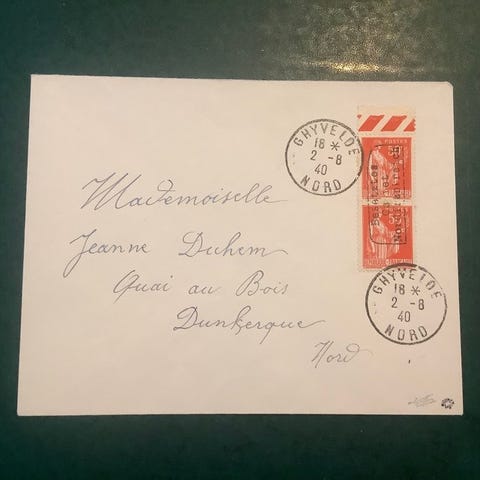 GHYVELDE
18 *
2 -8
40
NORD
POSTES
50
Besetztes
Gebiet
Nordfrankreich
GHYVELDE
18 *
2 -8
40
NORD
Mademoiselle
Jeanne Duhem
Quai au Bois
Dunkerque
Nord